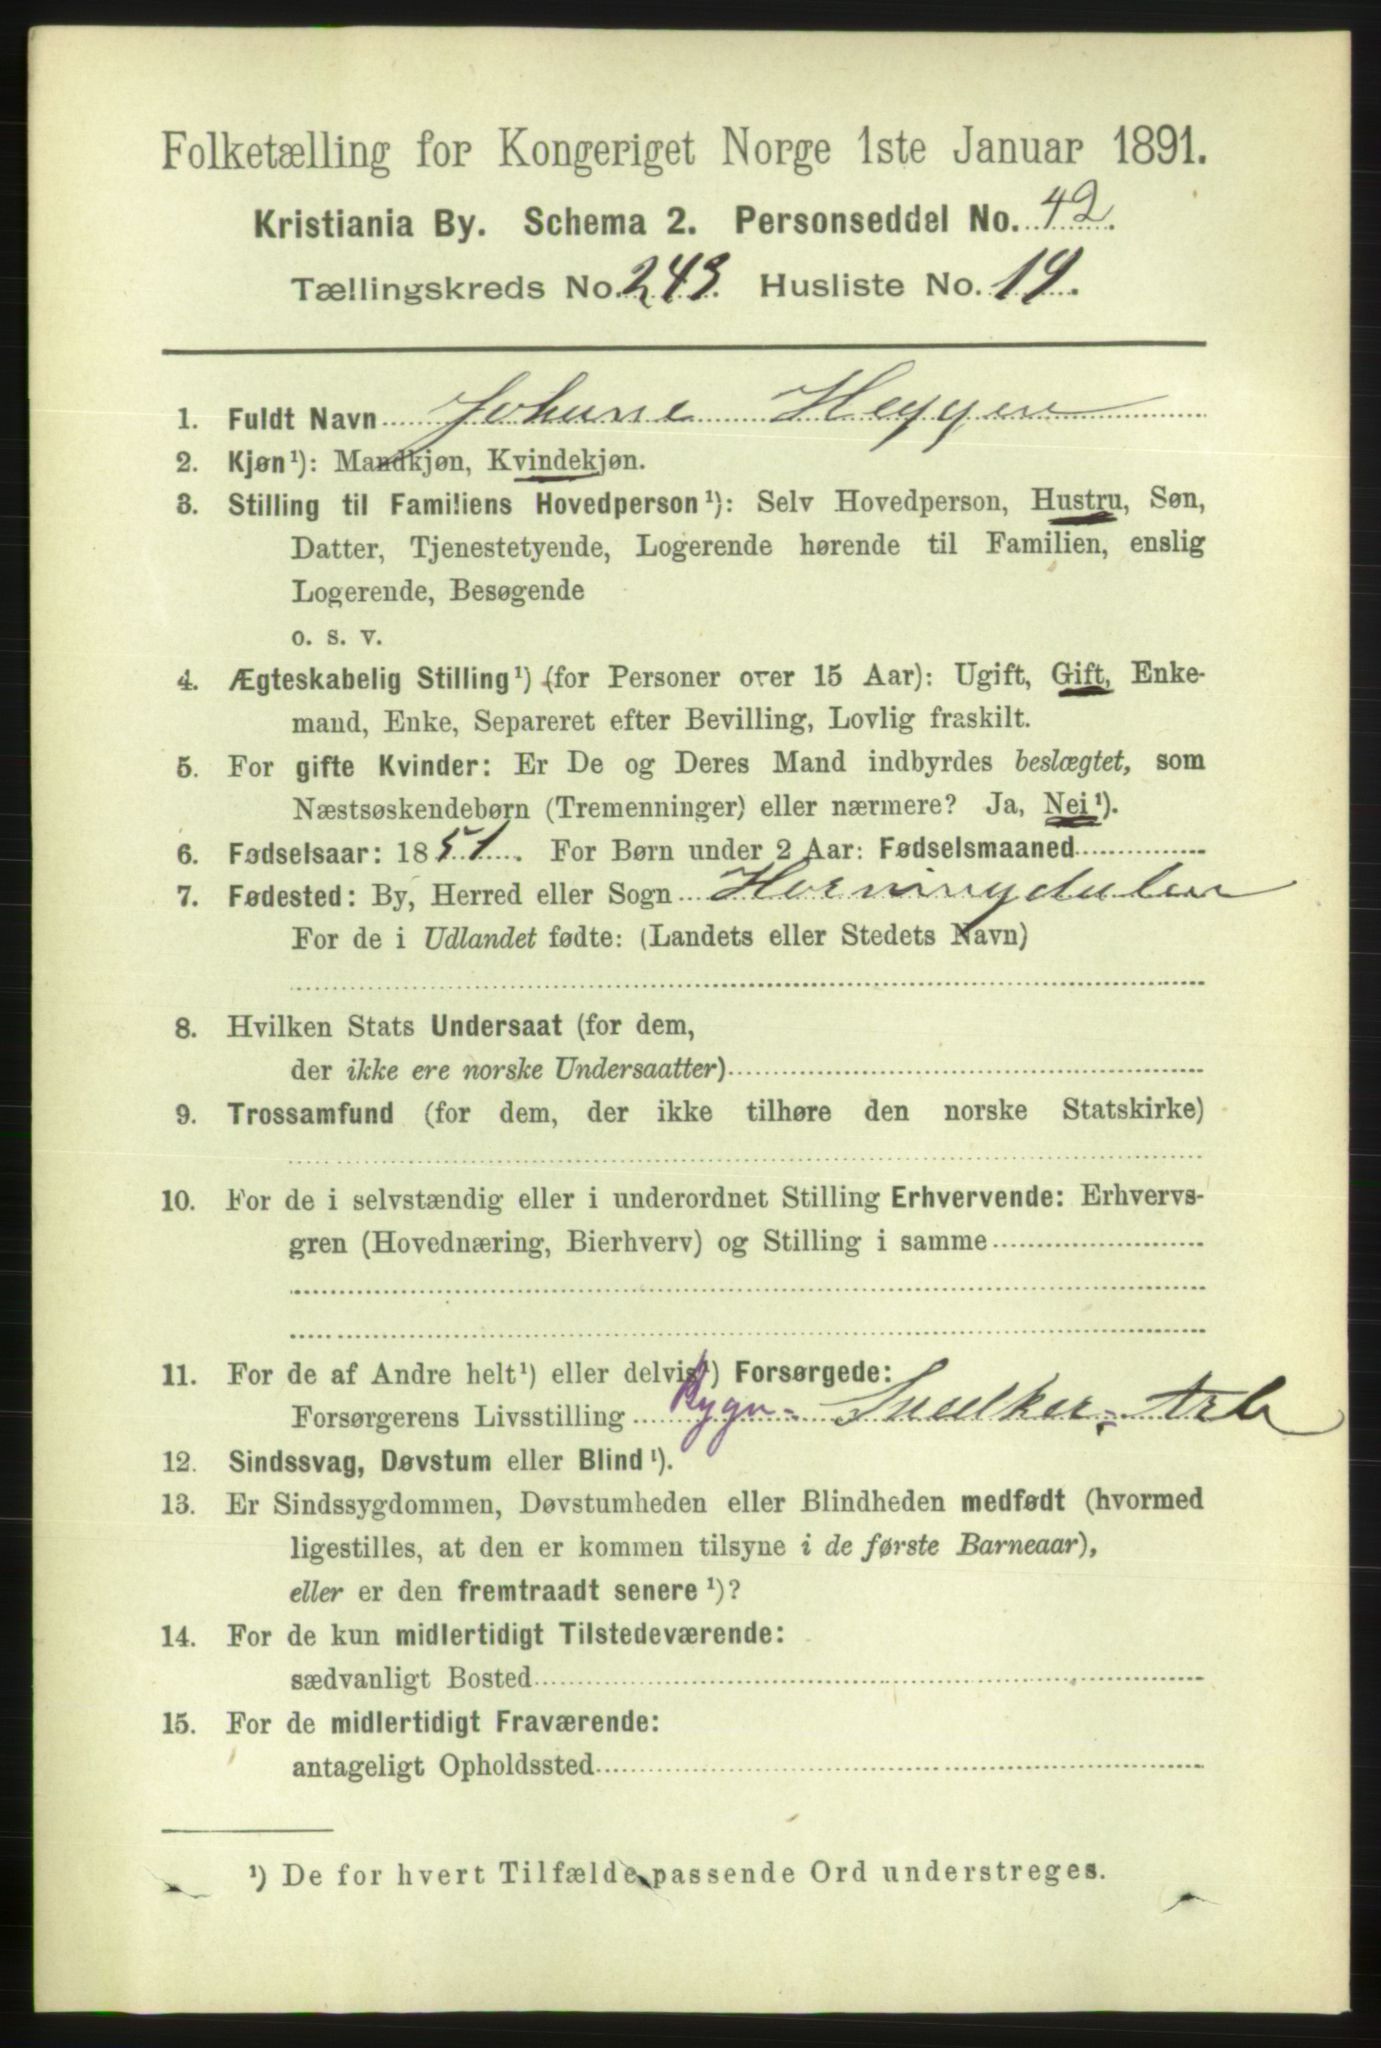 Folketælling for Kongeriget Norge 1ste Januar 1891.
Kristiania By. Schema 2. Personseddel No. 42.
Tællingskreds No. 243. Husliste No. 19.
1. Fuldt Navn Johane Heggen
2. Kjøn¹): Mandkjøn, Kvindekjøn.
3. Stilling til Familiens Hovedperson¹): Selv Hovedperson, Hustru, Søn,
Datter, Tjenestetyende, Logerende hørende til Familien, enslig
Logerende, Besøgende
o. s. v.
4. Ægteskabelig Stilling¹) (for Personer over 15 Aar): Ugift, Gift, Enke-
mand, Enke, Separeret efter Bevilling, Lovlig fraskilt.
5. For gifte Kvinder: Er De og Deres Mand indbyrdes beslægtet, som
Næstsøskendebørn (Tremenninger) eller nærmere? Ja, Nei¹).
6. Fødselsaar: 1851. For Børn under 2 Aar: Fødselsmaaned
7. Fødested: By, Herred eller Sogn Horningdalen
For de i Udlandet fødte: (Landets eller Stedets Navn)
8. Hvilken Stats Undersaat (for dem,
der ikke ere norske Undersaatter)
9. Trossamfund (for dem, der ikke tilhøre den norske Statskirke)
10. For de i selvstændig eller i underordnet Stilling Erhvervende: Erhvervs-
gren (Hovednæring, Bierhverv) og Stilling i samme
11. For de af Andre helt¹) eller delvis¹) Forsørgede:
Forsørgerens Livsstilling Bygn- Snedker- Arb
12. Sindssvag, Døvstum eller Blind¹).
13. Er Sindssygdommen, Døvstumheden eller Blindheden medfødt (hvormed
ligestilles, at den er kommen tilsyne i de første Barneaar),
eller er den fremtraadt senere¹)?
14. For de kun midlertidigt Tilstedeværende:
sædvanligt Bosted
15. For de midlertidigt Fraværende:
antageligt Opholdssted
¹) De for hvert Tilfælde passende Ord understreges.